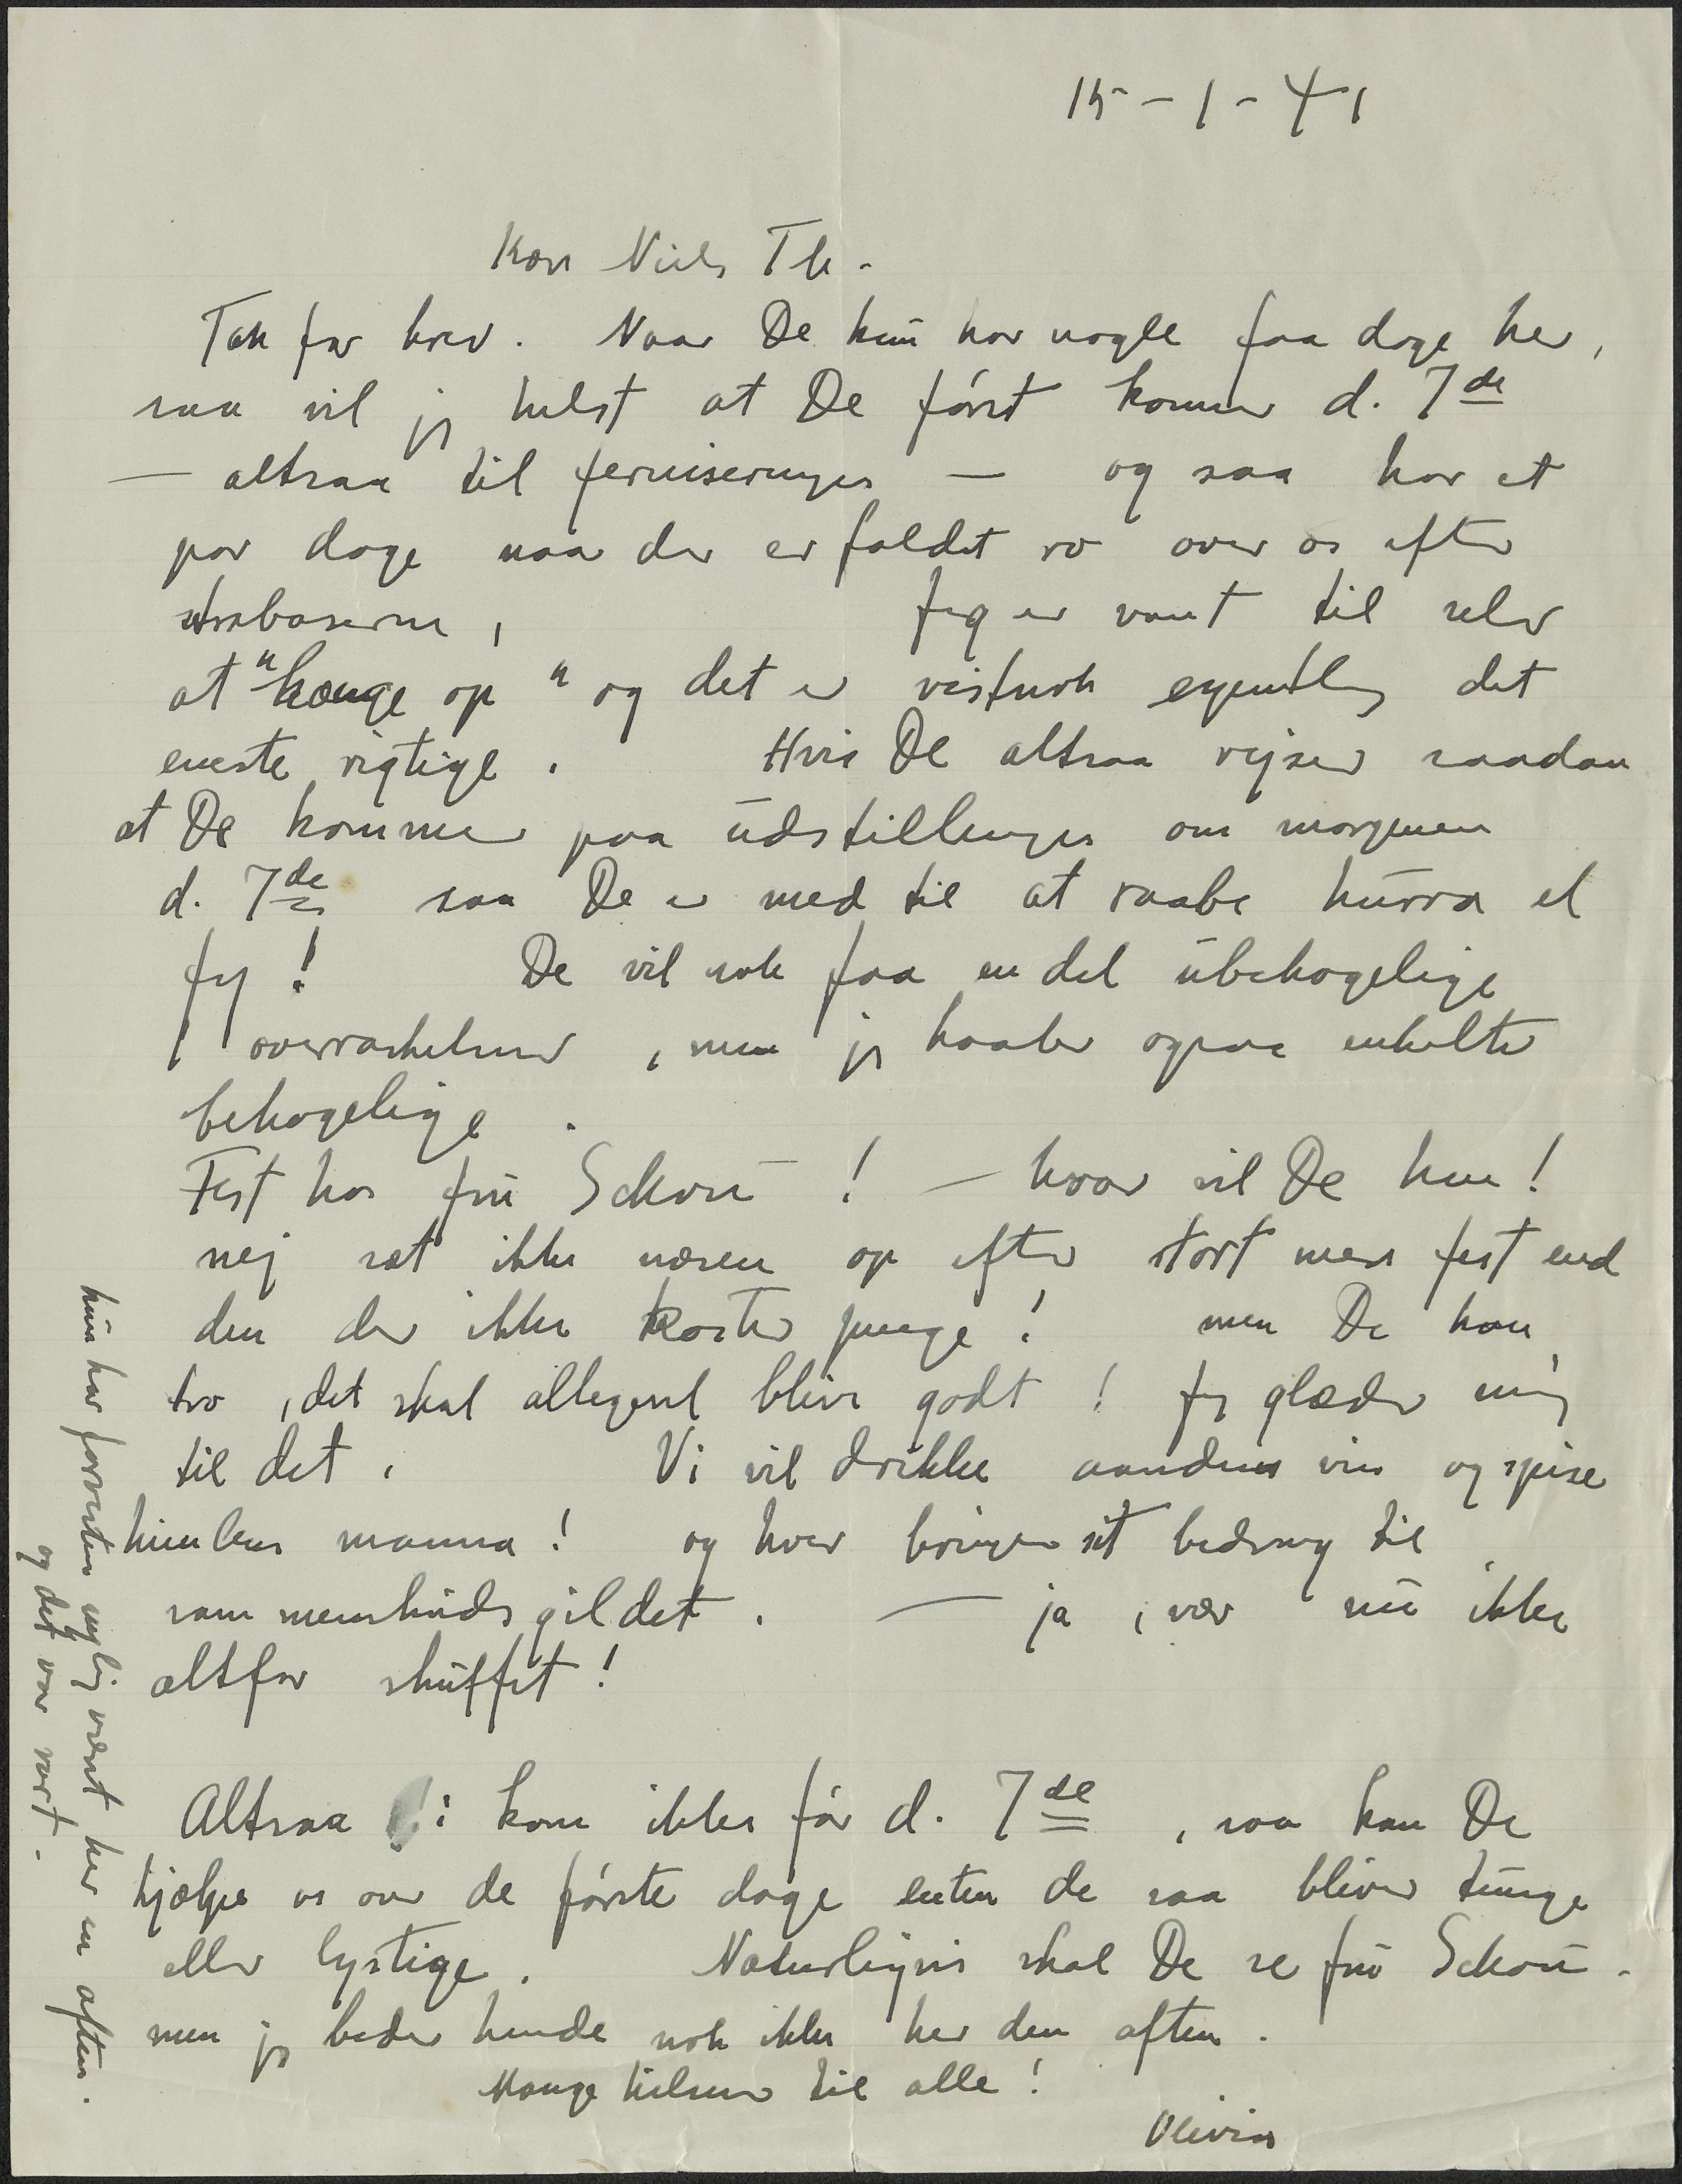 15-1-41
Kære Niels Th.
Tak for brev. Naar De kun har nogle faa dage her,
saa vil jeg helst at De først kommer d. 7de
— altsaa til ferniseringen — og saa har et
par dage naar der er faldet ro over os efter
strabaserne, Jeg er vant til selv
at "hænge op" og det er vistnok egentlig det
eneste rigtige. Hvis De altsaa rejser saadan
at De kommer paa udstillingen om morgenen
d. 7de saa De er med til at raabe hurra el
fy! De vil nok faa en del ubehagelige
overraskelser, men jeg haaber ogsaa enkelte
behagelige.
Fest hos fru Schou! — hvor vil De hen!
nej sæt ikke næsen op efter stort mere fest end
den der ikke koster penge! men De kan
tro, det skal alligevel blive godt! Jeg glæder mig
til det. Vi vil drikke aandens vin og spise
himlens manna! og hver bringer sit bidrag til
sammenskudsgildet. — ja, vær nu ikke
altfor skuffet!
Altsaa: kom ikke før d. 7de, saa kan De
hjælpe os over de første dage enten de saa bliver tunge
eller lystige. Naturligvis skal De se fru Schou.
men jeg beder hende nok ikke her den aften.
Mange hilsner til alle!
Olivia
hun har forresten nylig været her en aften.
og det var rart.